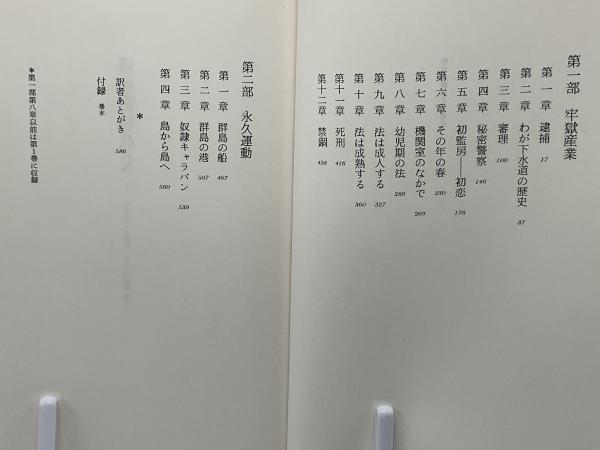 第一部 牢獄産業
第一章 逮捕 17
第二章 わが下水道の歴史 37
第三章 審理 100
第四章 秘密警察 146
第五章 初監房──初恋 178
第六章 その年の春 230
第七章 機関室のなかで 269
第八章 幼児期の法 289
第九章 法は成人する 327
第十章 法は成熟する 360
第十一章 死刑 416
第十二章 禁錮 438
第二部 永久運動
第一章 群島の船 467
第二章 群島の港 507
第三章 奴隷キャラバン 539
第四章 島から島へ 560
*
訳者あとがき 586
付録 巻末
*第一部第八章以前は第1巻に収録